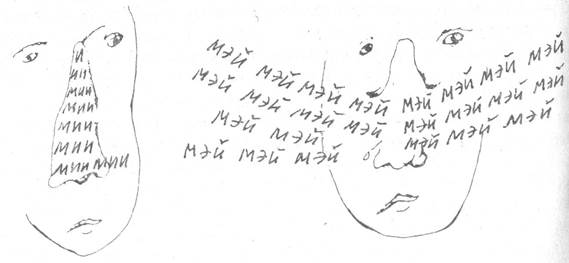 и
ии
мии
мии
мии
мии
мии мии
мэй мэй мэй мэй мэй мэй мэй мэй
мэй мэй мэй мэй мэй мэй мэй мэй
мэй мэй мэй мэй мэй
мэй мэй мэй